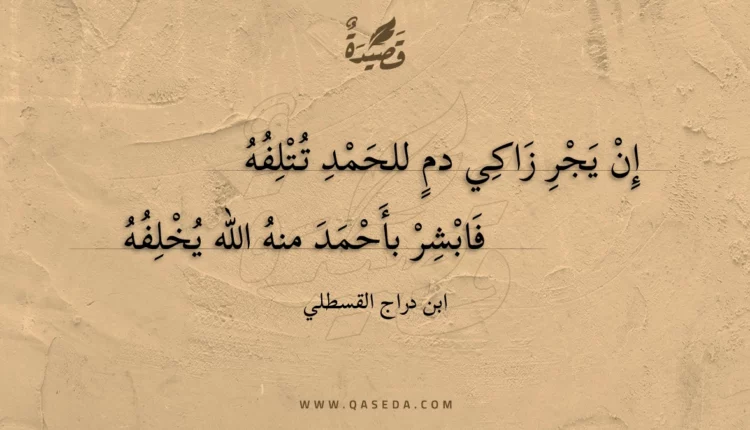 قَصِيْدَةٌ
إِنْ يَجْرِ زَاكِي دمٍ للحَمْدِ تُتْلِفُهُ
فَابْشِرْ بأَحْمَدَ منهُ الله يُخْلِفُهُ
ابن دراج القسطلي
WWW.QASEDA.COM